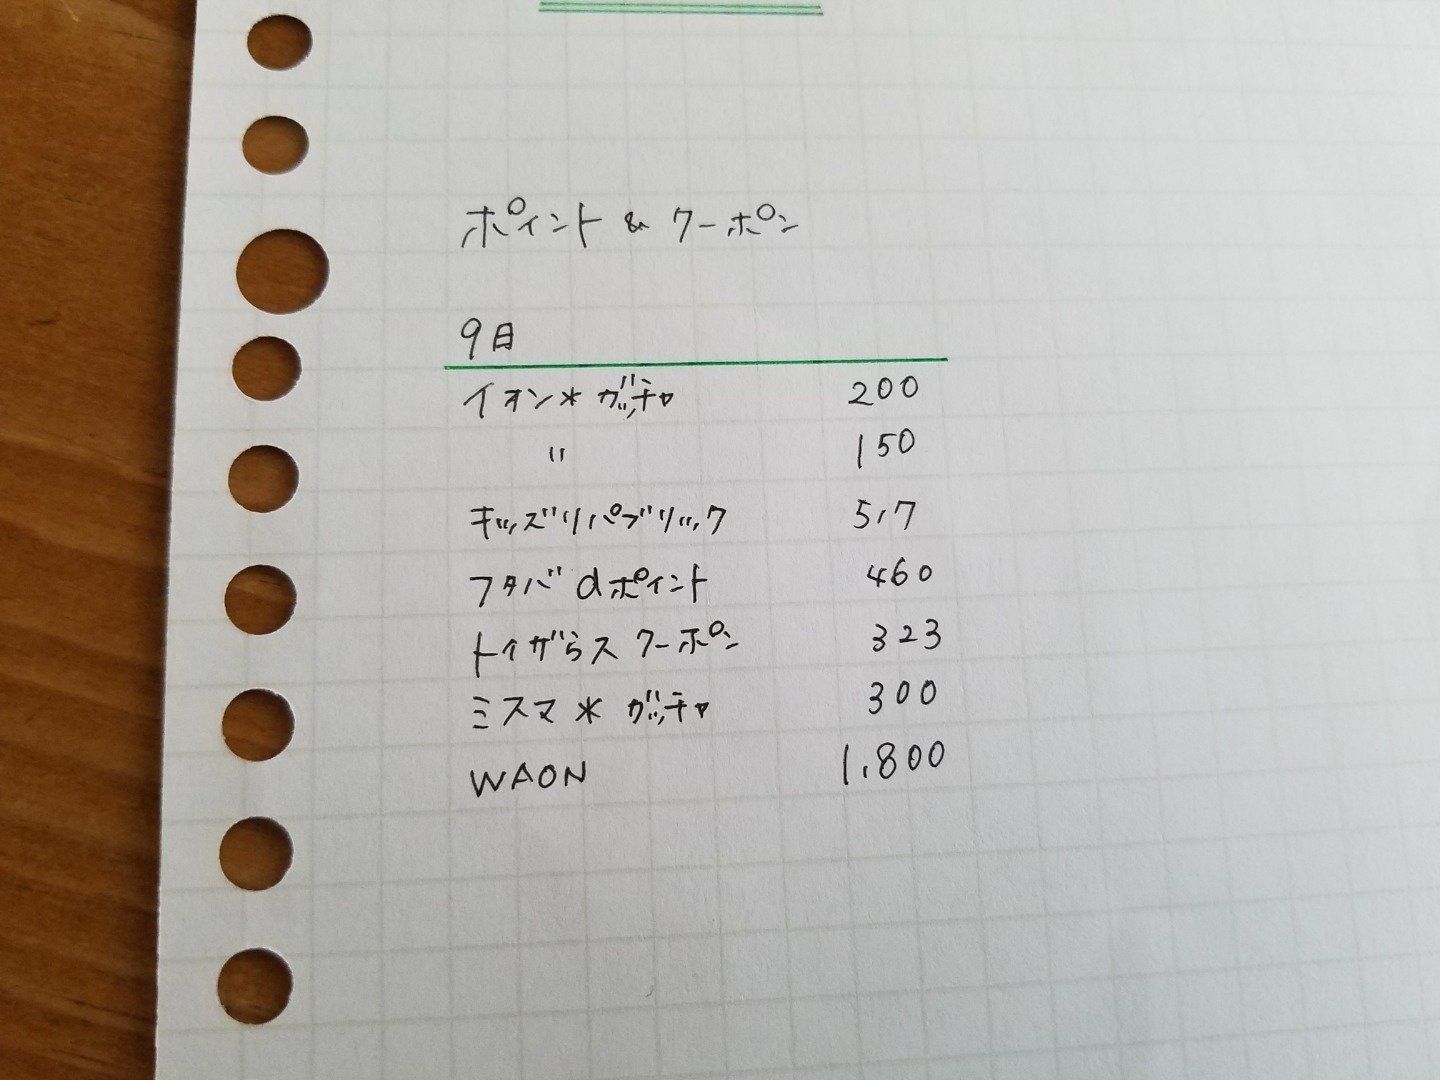 ポイント & クーポン
9月
イオン* ガッチャ 200
〃 150
キッズリパブリック 517
フタバ dポイント 460
トイザらス クーポン 323
ミスマ * ガッチャ 300
WAON 1,800